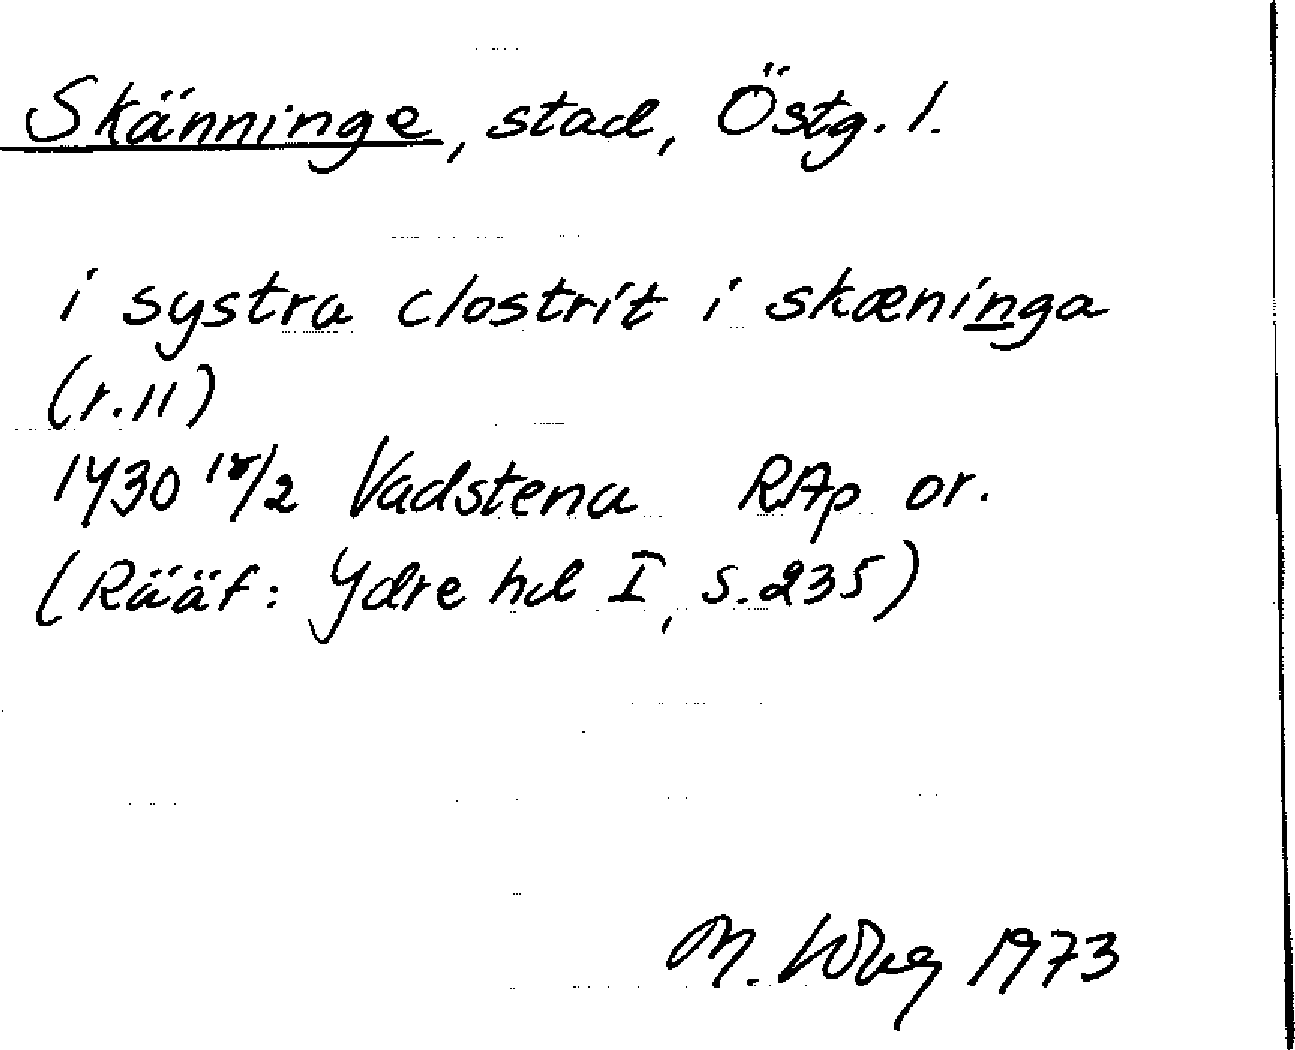 Skänninge, stad, Östg. l.
i systra clostrit i skæninga
(r. 11)
1430 /2 Vadstena RAp or.
(Rääf: Ydre hd I, s. 235)
M. 1973